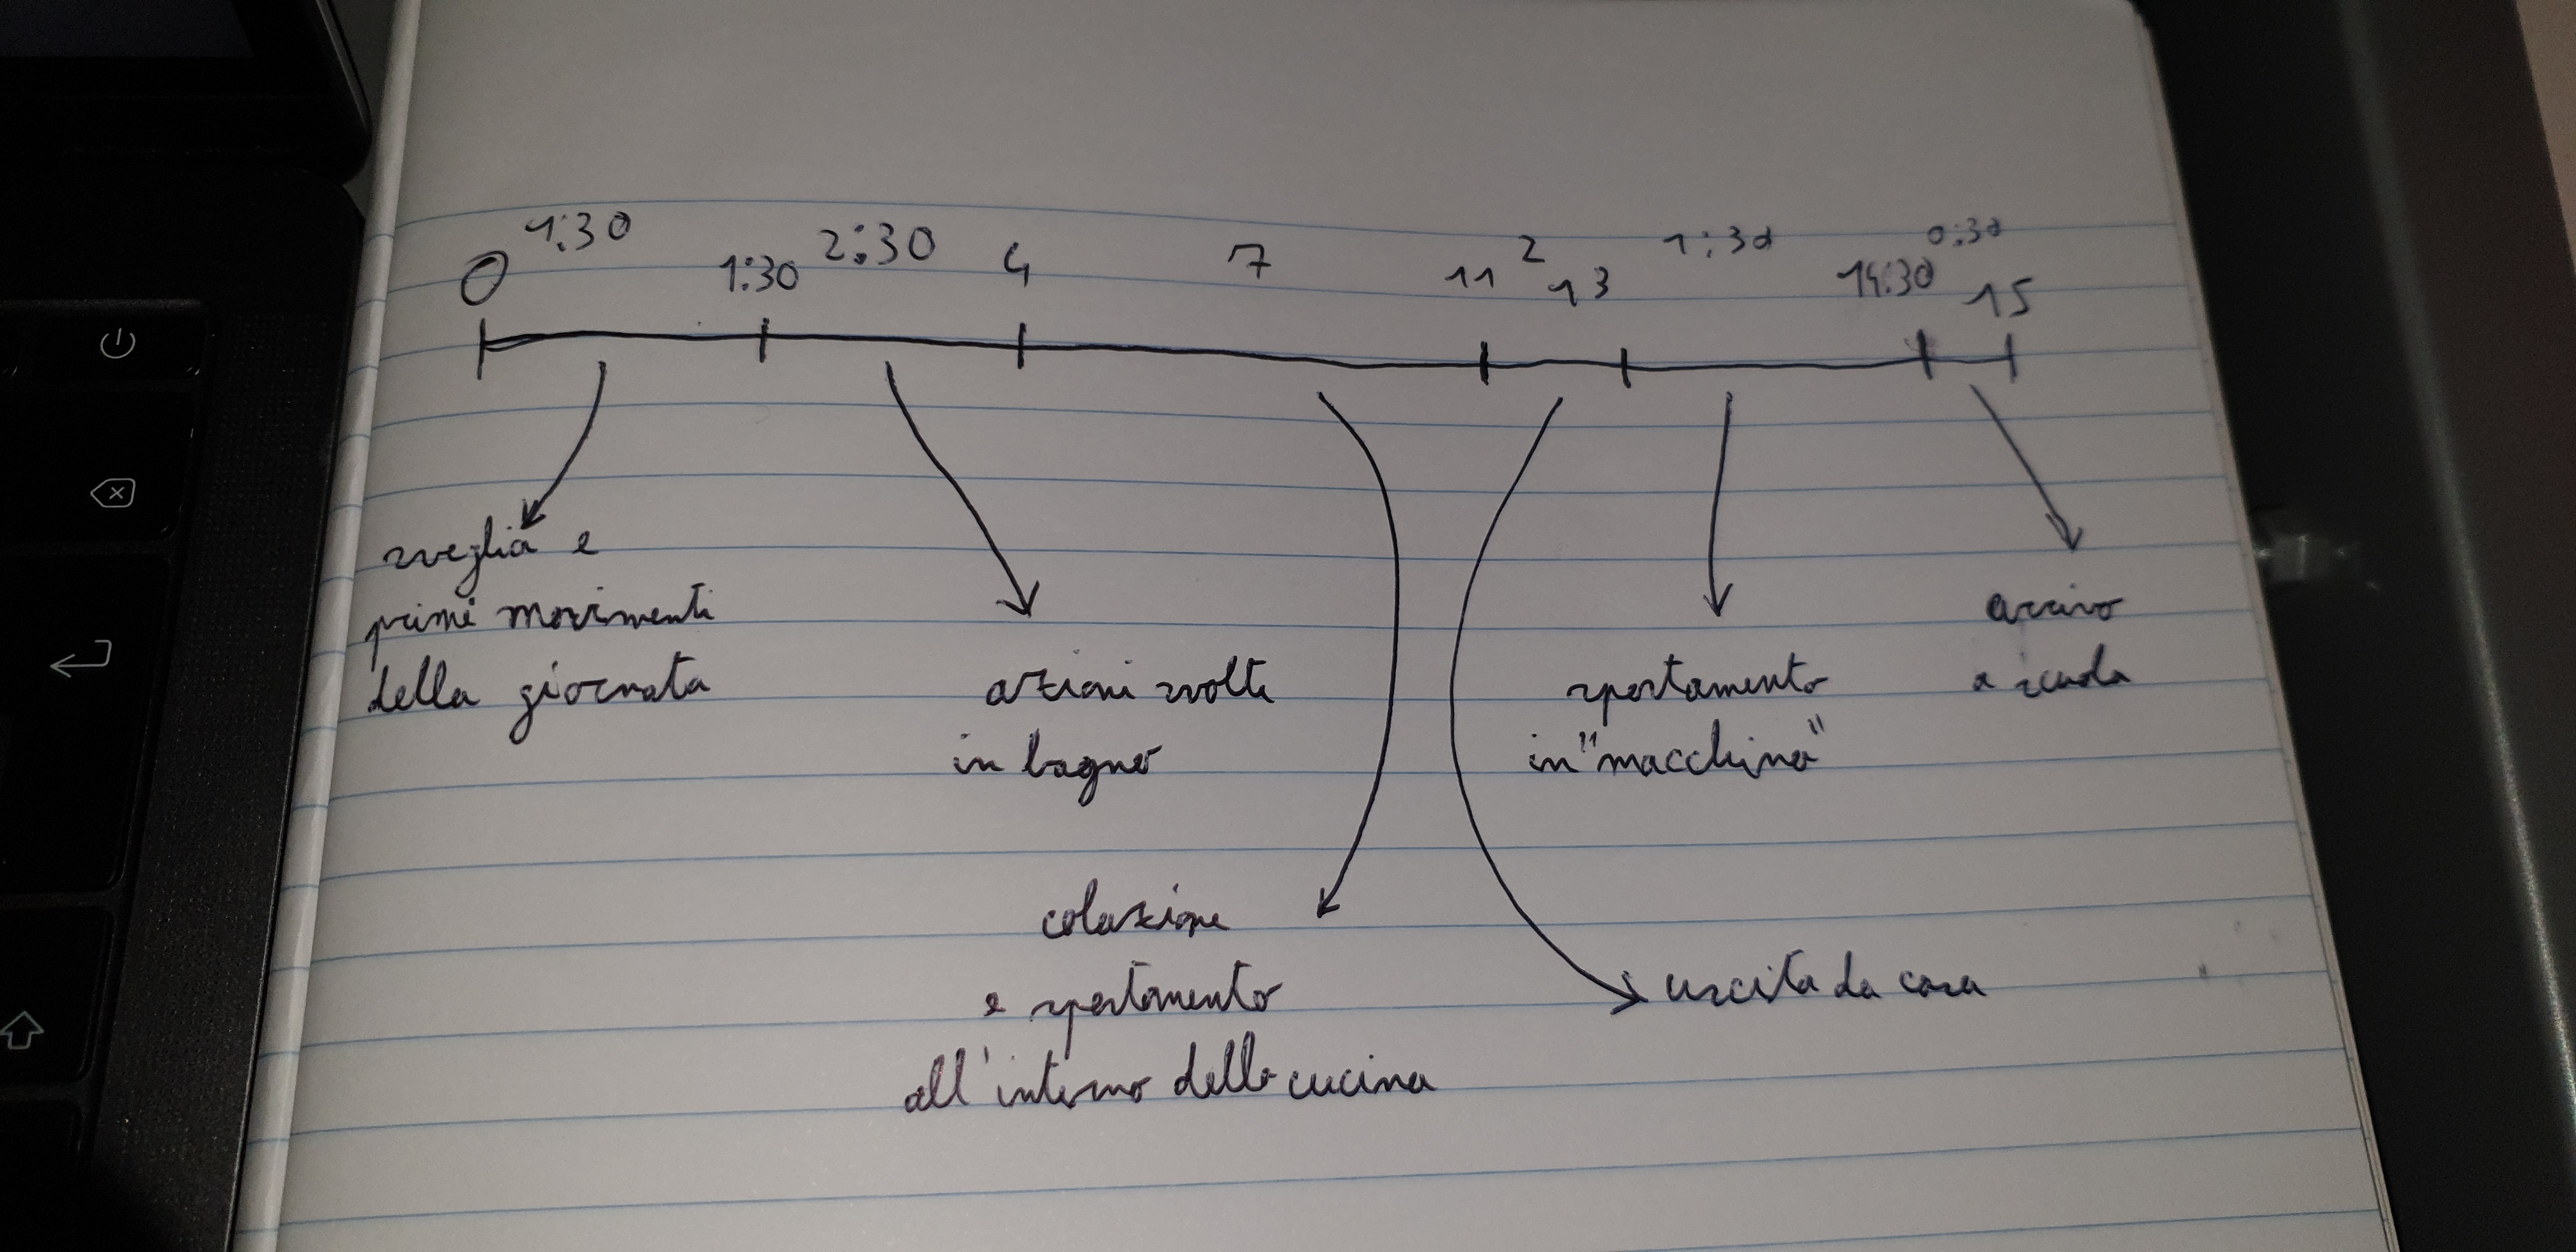 0 1:30 1:30 2:30 4 7 11 2 13 1:30 14:30 0:30 15
sveglia e
primi movimenti
della giornata
azioni svolte
in bagno
colazione
e spostamento
all'interno della cucina
uscita da casa
spostamento
in "macchina"
arrivo
a scuola